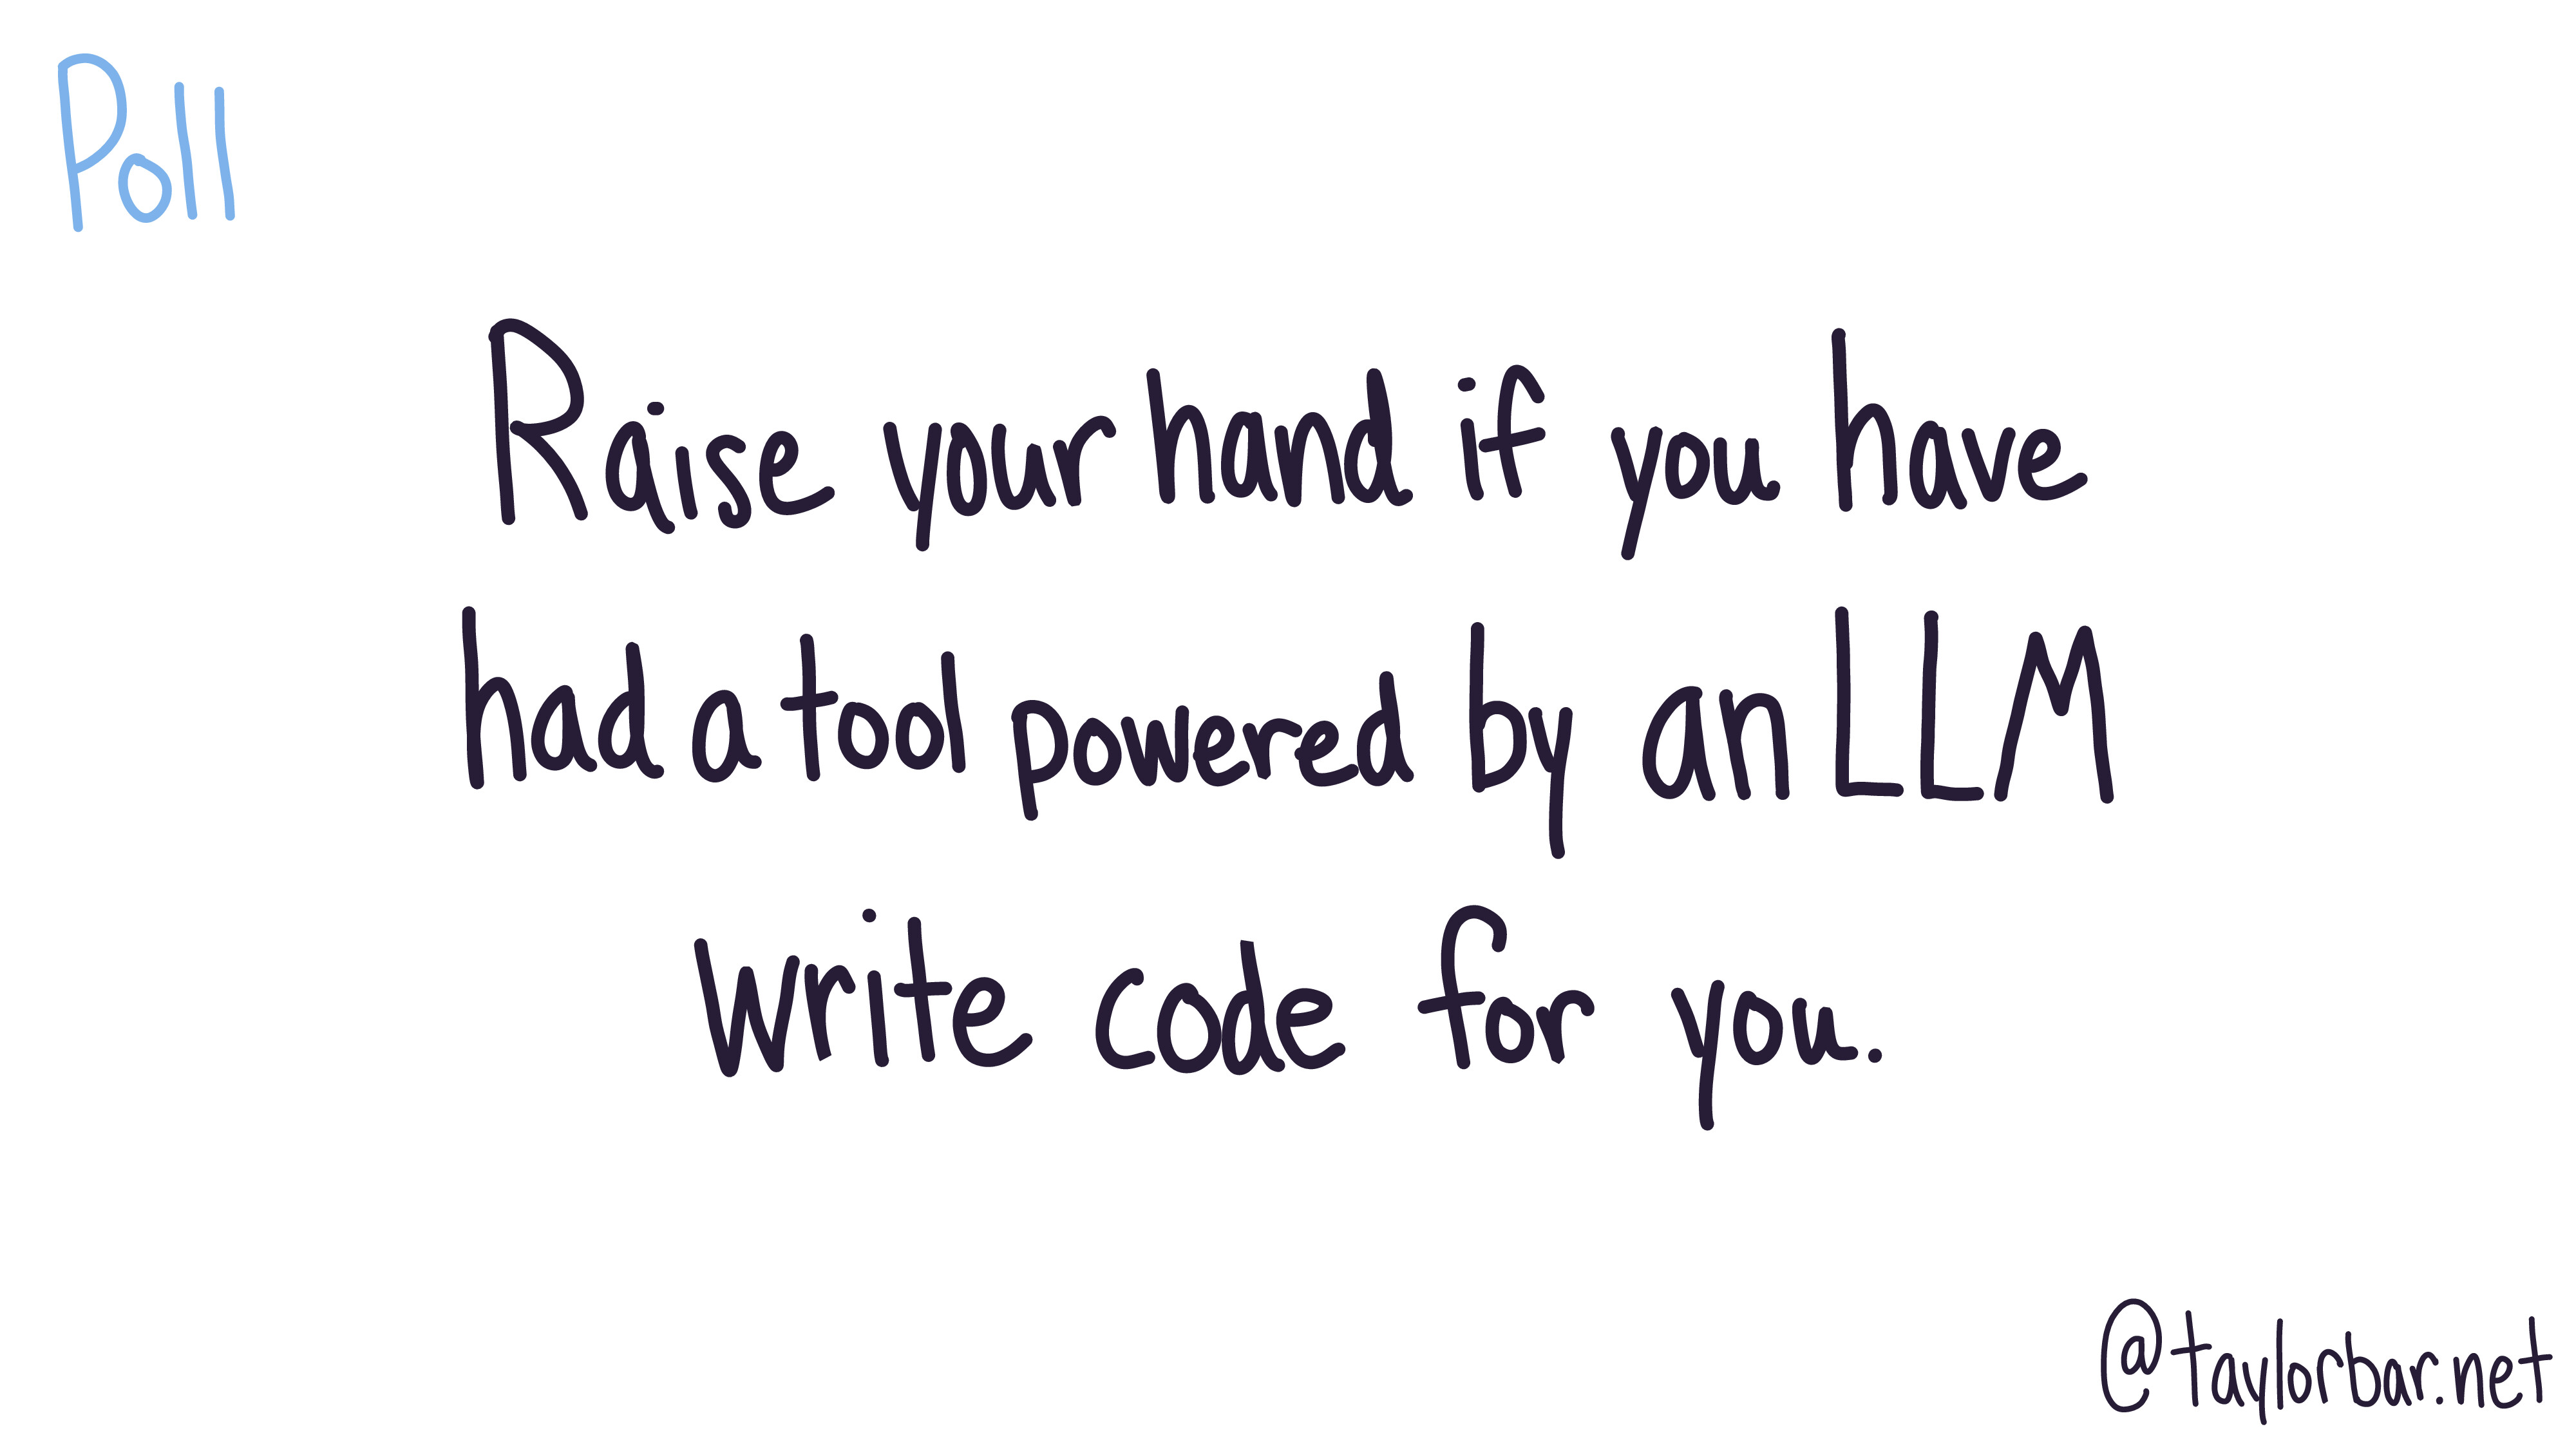 Poll
Raise your hand if you have
had a tool powered by an LLM
write code for you.
@taylorbar.net